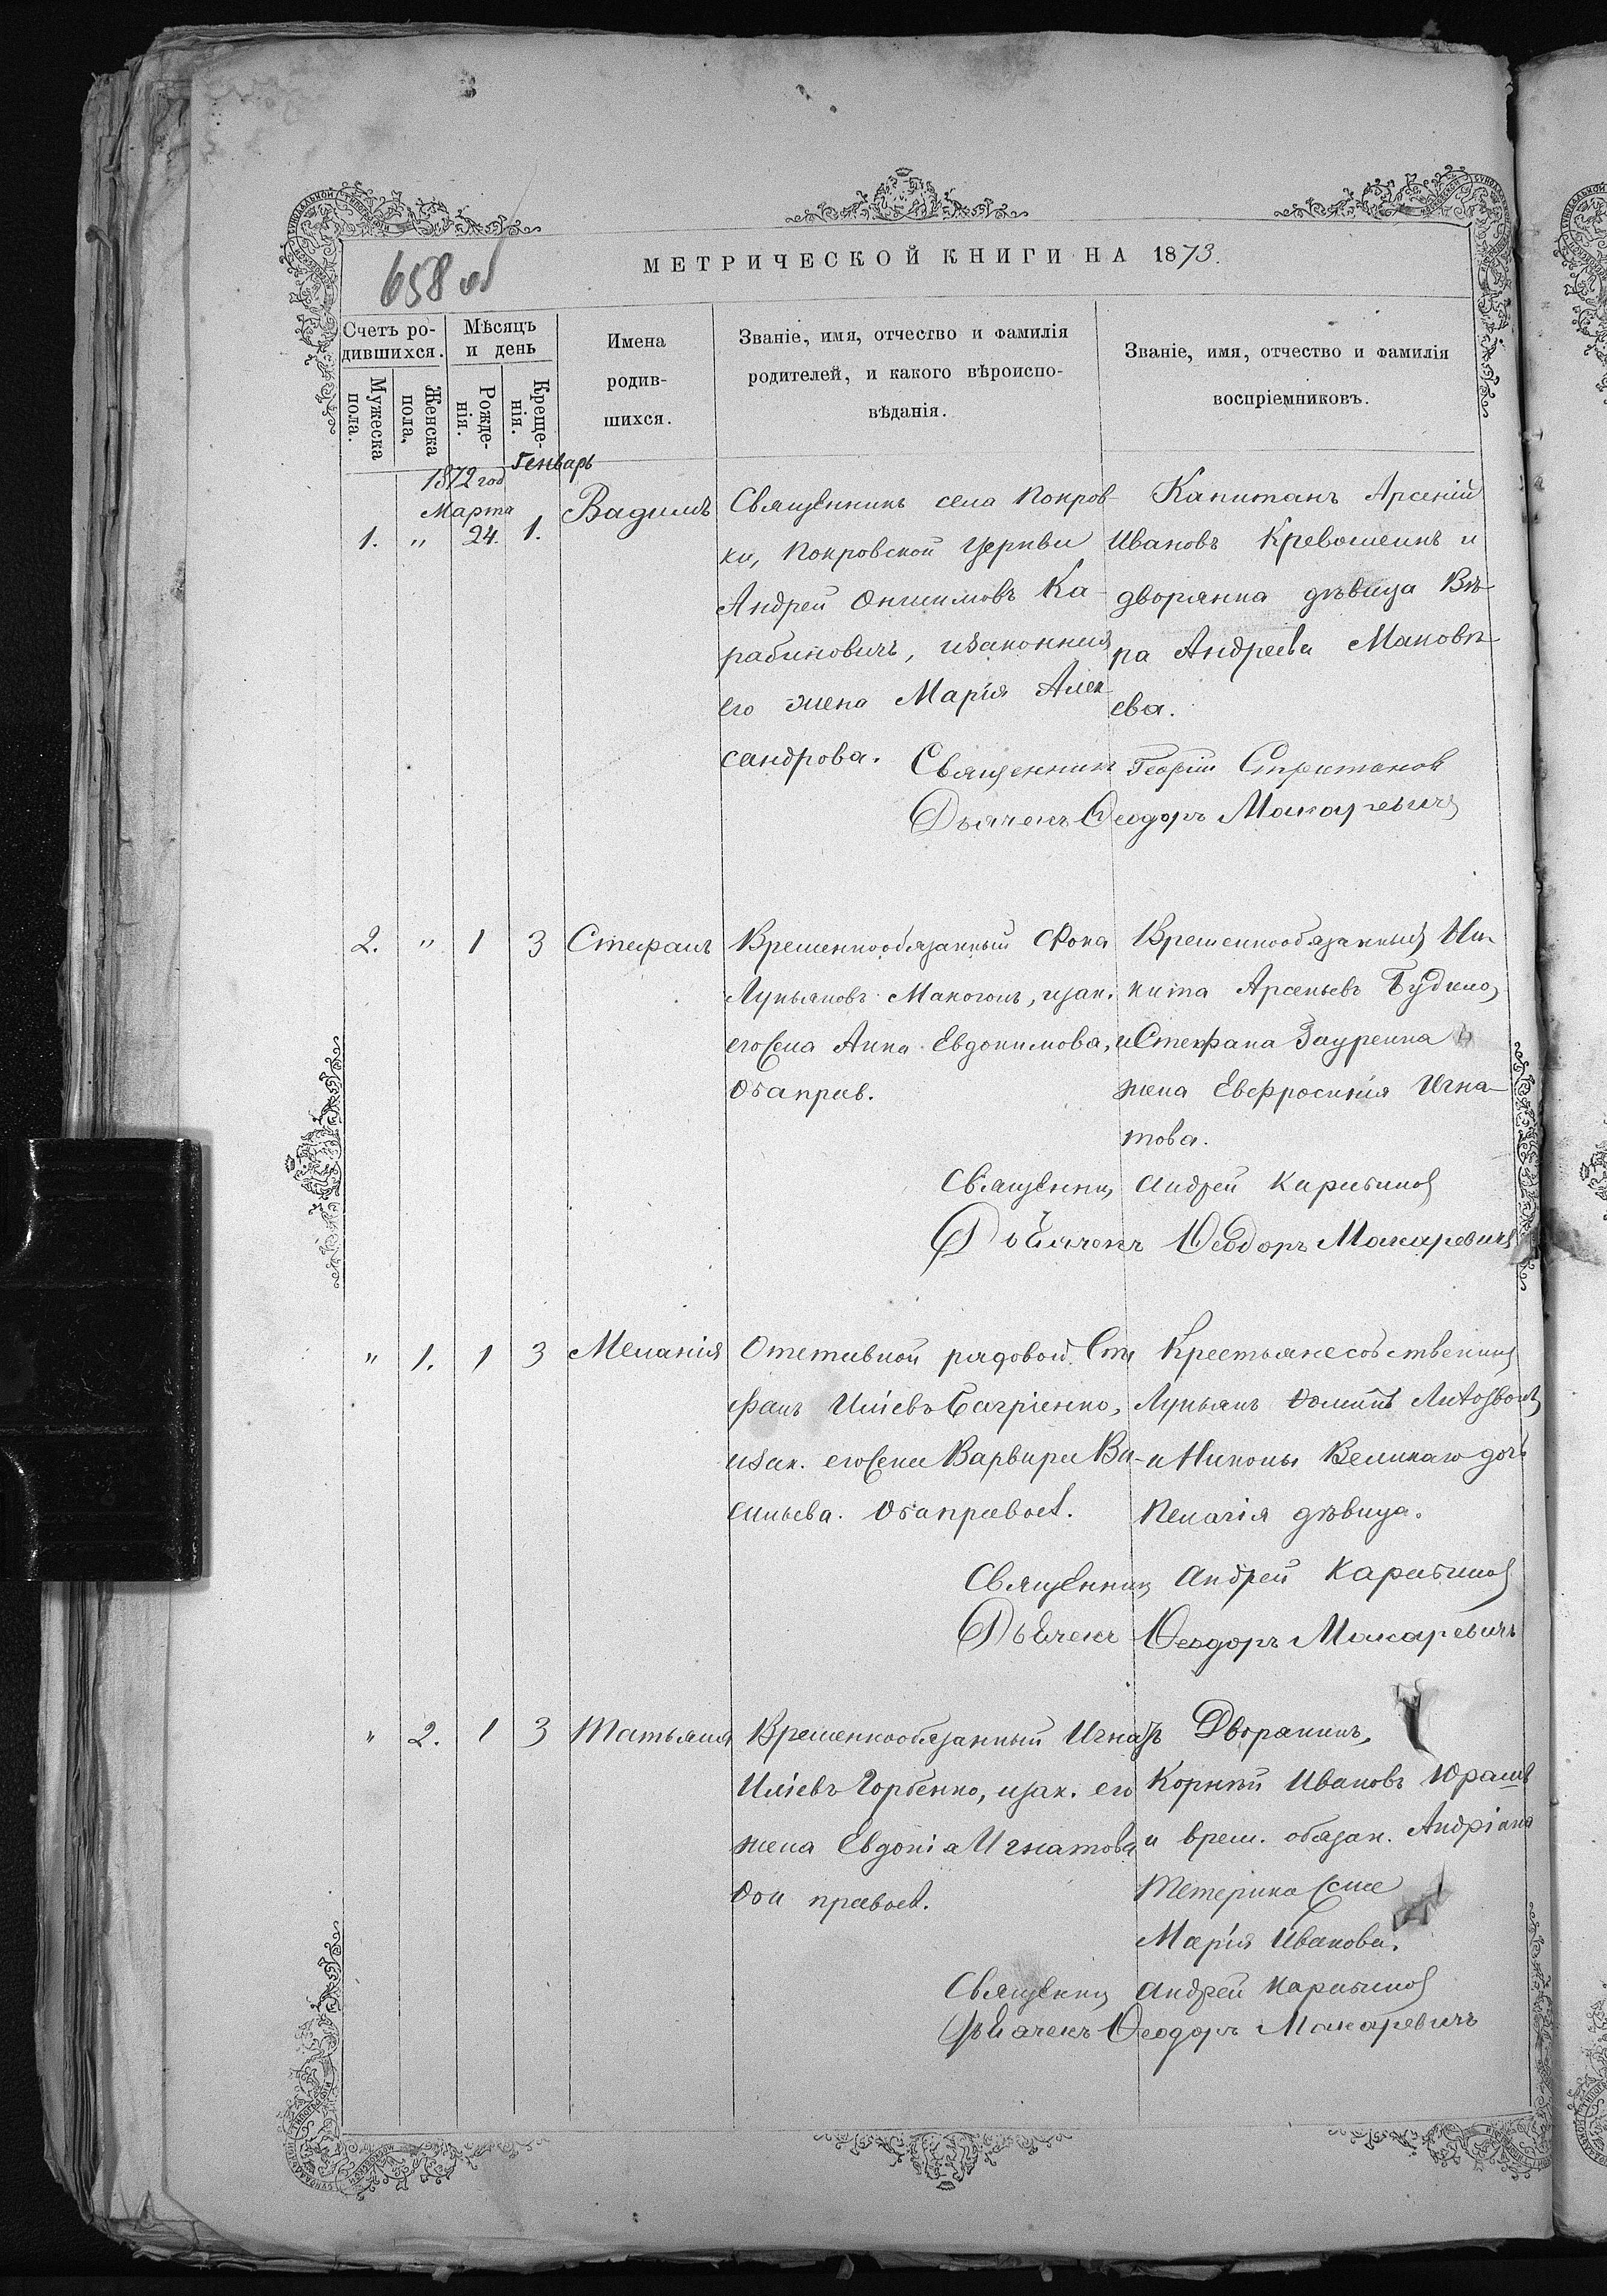 658 об
МЕТРИЧЕСКОЙ КНИГИ НА 1873.
Счетъ ро-
дившихся.
Мужеска
пола.
Женска
пола.
Мѣсяцъ
и день
Рожде-
нія.
Креще-
нія.
Имена
родив-
шихся.
Званіе, имя, отчество и фамилія
родителей, и какого вѣроиспо-
вѣданія.
Званіе, имя, отчество и фамилія
воспріемниковъ.
1872 год
Марта
Генварь
1. " 24. 1.
Вадимъ
Священникъ села Покров-
ки, Покровской церкви
Андрей Онисимовъ Ка-
рабиновичъ, изаконная
его жена Марія Алек-
сандрова.
Капитанъ Арсеній
Ивановъ Кревошеинъ и
дворянка дѣвица Вѣ-
ра Андреева Маковѣ-
ева.
Священникъ Георгій
Дьячекъ Ѳеодоръ Макаревичъ
2. " 1 3
Стефанъ
Временнообязанный Фока
Лукьяновъ Макогонъ, изак.
его жена Анна Евдокимова,
оба прав.
Временнообязанный Ни-
кита Арсеньевъ
и Стефана
жена Евфросинія Игна-
това.
Священникъ Андрей Карабинов
Дьячекъ Ѳеодоръ Макаревичъ
" 1. 1 3
Меланія
Отставной рядовой Сте
фанъ Иліевъ Багріенко,
изак. его жена Варвара Ва-
сильева. Оба правосл.
Крестьяне собственники
Лукьянъ
и Никоны Великаго дочь
Пелагія дѣвица.
Священникъ Андрей Карабинов
Дьячекъ Ѳеодоръ Макаревичъ
" 2. 1 3
Татьяна
Временнообязанный Игнатъ
Иліевъ Горбенко, изак. его
жена Евдокіа Игнатова
оба правосл.
Дворянинъ,
Корнѣй Ивановъ Юрашъ
и врем. обязан. Андріана
Тетерика жена
Марія Иванова.
Священникъ Андрей Карабинов
Дьячекъ Ѳеодоръ Макаревичъ